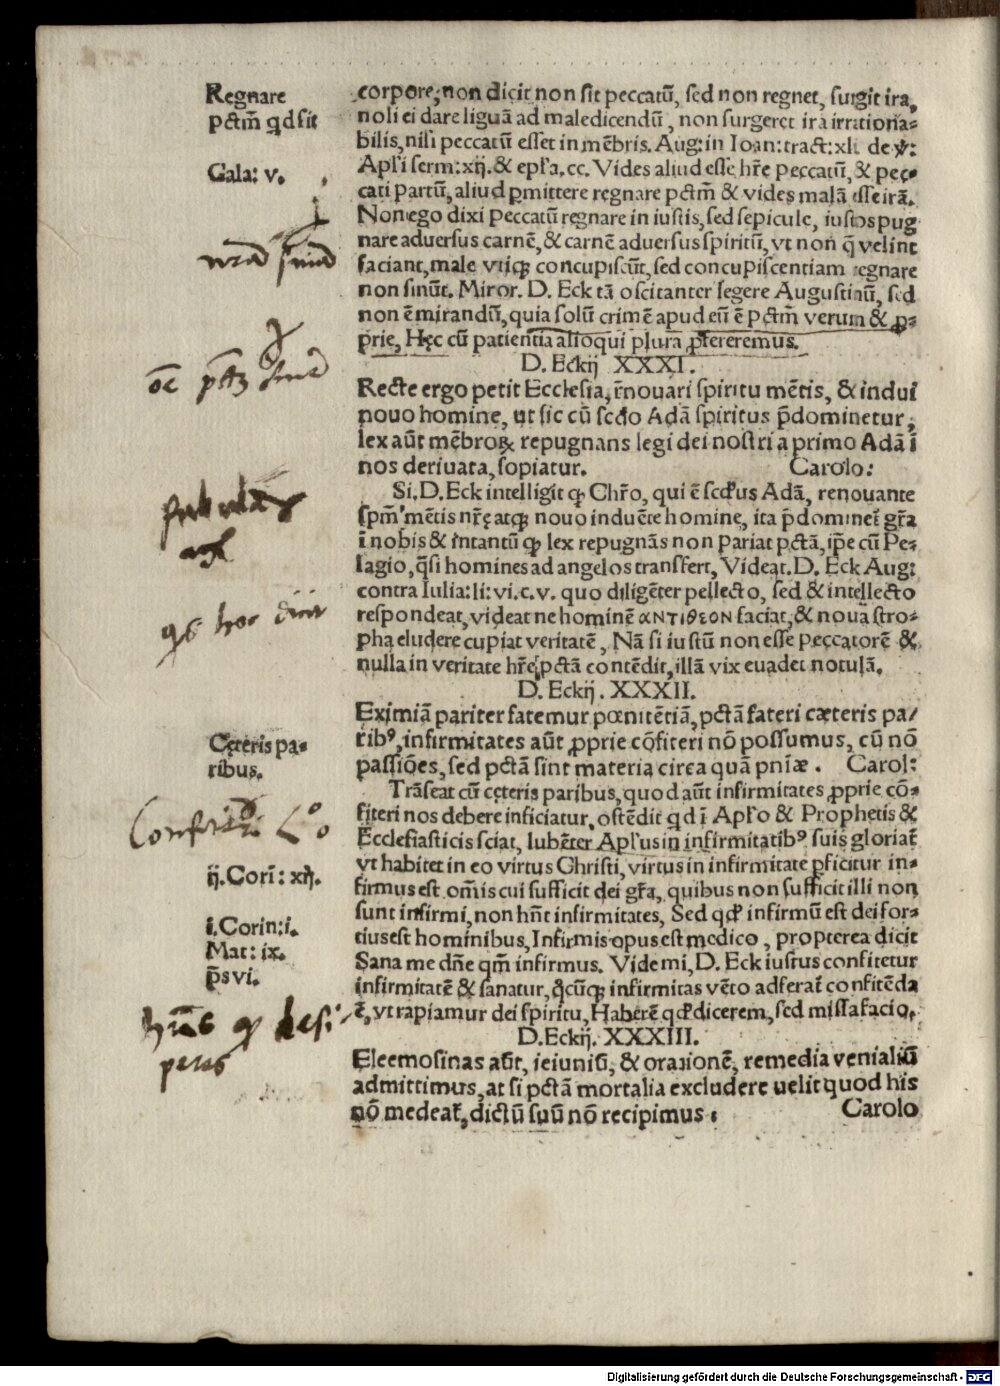 Regnare
pctm̄ qd sit
Gala: v.
corpore, non dicit non sit peccatū, sed non regnet, surgit ira,
noli ei dare liguā ad maledicendū, non surgeret ira irrationa-
bilis, nisi peccatū esset in mēbris. Aug: in Ioan: tract: xli. de
Apľi serm: xij. & epľa. cc. Vides aliud esse hře peccatū, & pec-
cati partū, aliud ꝑmittere regnare pctm̄ & vides malā esse irā.
Non ego dixi peccatū regnare in iustis, sed sepicule, iustos pug
nare aduersus carnē, & carnē aduersus spiritū, vt non q̄ velint
faciant, male vtiqȝ concupiscūt, sed concupiscentiam regnare
non sinūt. Miror. D. Eck tā oscitanter legere Augustinū, sed
non ē mirandū, quia solū crimē apud eū ē pctm̄ verum & ꝓ-
prie, Hęc cū patientia alioqui plura ꝓferremus.
D. Eckij XXXI.
Recte ergo petit Ecclesia, r̄nouari spiritu mētis, & indui
nouo homine, ut sic cū scdo Adā spiritus p̄dominetur,
lex aūt mēbroꝝ repugnans legi dei nostri a primo Adā ī
nos deriuata, sopiatur. Carolo:
Si. D. Eck intelligit ꝙ Chřo, qui ē scďus Adā, renouante
spm̄ mētis nr̄ę atqȝ nouo induēte homine, ita p̄dominet̄ gřa
ī nobis & intantū ꝙ lex repugnās non pariat pctā, ip̄e cū Pe-
lagio, q̄si homines ad angelos transfert, Videat. D. Eck Aug:
contra Iulia: li: vi. c. v. quo diligēter pellecto, sed & intellecto
respondeat, videat ne hominē ἀΝΤΙΘΕΟΝ faciat, & noua stro-
pha eludere cupiat veritatē, Nā si iustū non esse peccatorē &
nulla in veritate hře pctā contēdit, illā vix euadet notulā.
D. Eckij. XXXII.
Eximiā pariter fatemur pœnitētiā, pctā fateri cæteris pa/
ribꝰ, infirmitates aūt ꝓprie cōfiteri nō possumus, cū nō
passiōes, sed pctā sint materia circa quā pnīæ. Carol:
Cęteris pa-
ribus.
Trāseat cū cęteris paribus, quod aūt infirmitates ꝓprie cō-
fiteri nos debere inficiatur, ostēdit qd ī Apľo & Prophetis &
Ecclesiasticis sciat, lubēter Apľus in infirmitatibꝰ suis gloriat̄
vt habitet in eo virtus Christi, virtus in infirmitate ꝑficitur in-
firmus est om̄is cui sufficit dei gřa, quibus non sufficit illi non
sunt infirmi, non hn̄t infirmitates, Sed qď infirmū est dei for-
tius est hominibus, Infirmis opus est medico, propterea dicit
Sana me dn̄e qm̄ infirmus. Vide mi, D. Eck iustus confitetur
infirmitatē & sanatur, q̄cūqȝ infirmitas vēto adferat̄ confitēda
ē, vt rapiamur dei spiritu, Haberē qď dicerem, sed missa facio.
ij. Corī: xij.
i. Corin: i.
Mat: ix.
p̄s vi.
D. Eckij. XXXIII.
Eleemosinas aūt, ieiuniū, & orationē, remedia venialiū
admittimus, at si pctā mortalia excludere uelit quod his
nō medeat̄, dictū suū nō recipimus. Carolo
Digitalisierung gefördert durch die Deutsche Forschungsgemeinschaft - DFG